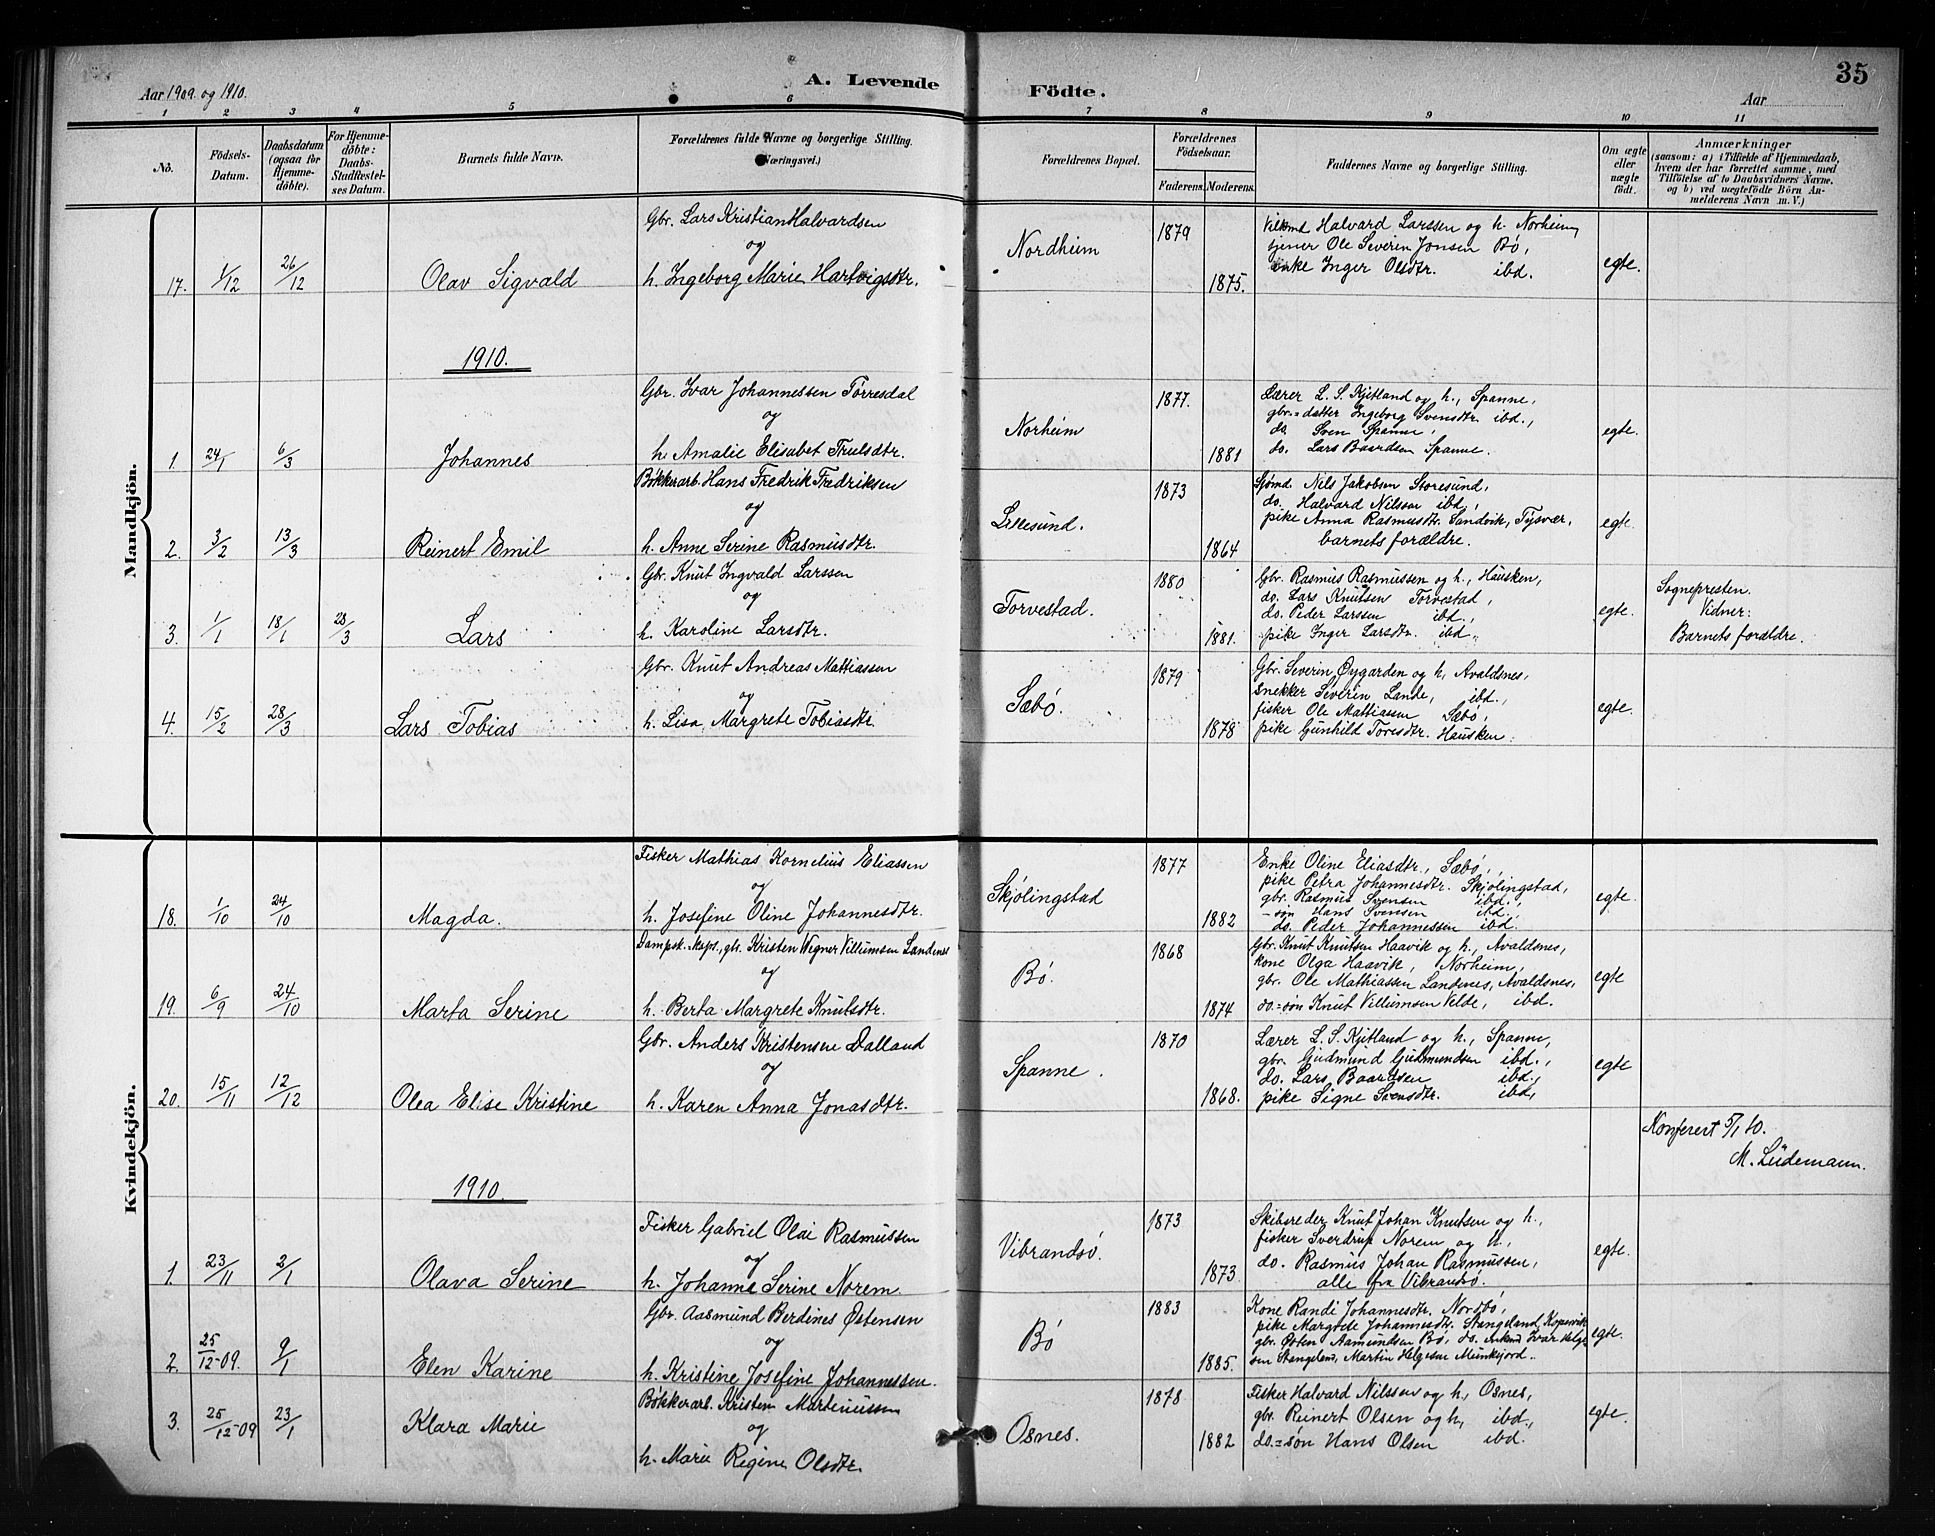 Aar 1909. og 1910.
A. Levende
Födte.
Aar
35
1 2 3 4 5 6 7 8 9 10 11
No.
Födsels-
Datum.
Daabsdatum
(ogsaa for
Hjemme-
döbte).
For Hjemme-
döbte:
Daabs-
Stadfæstel-
ses Datum.
Barnets fulde Navn.
Forældrenes fulde Navne og borgerlige Stilling.
(Næringsvei.)
Forældrenes Bopæl.
Forældrenes
Födselsaar.
Faderens. Moderens.
Faddernes Navne og borgerlige Stilling.
Om ægte
eller
uægte
födt.
Anmærkninger
(saasom: a) i Tilfælde af Hjemmedaab,
hvem der har forrettet samme, med
Tilföielse af to Daabsvidners Navne,
og b) ved uægtefödte Börn An-
melderens Navn m. V.)
Mandkjön.
17. 1/12 26/12 Olav Sigvald
Gbr. Lars Kristian Halvardsen
og
h. Ingeborg Marie Hartvigsdtr.
Nordheim
1879
1875.
Halvard Larssen og h. Norheim,
tjener Ole Severin Jonsen Bö,
enke Inger Olsdtr. ibd.
egte.
1910.
1. 24/1 6/3 Johannes
Gbr. Ivar Johannessen Törresdal
og
h. Amalie Elisabet Trulsdtr.
Norheim
1877.
1881
Lærer L. S. Kjitland og h., Spanne,
gbr.=datter Ingeborg Svensdtr. ibd.,
do. Sven Spanne,
do. Lars Baardsen Spanne.
egte.
2. 3/2 13/3 Reinert Emil
Bökkerarb. Hans Fredrik Fredriksen
og
h. Anne Serine Rasmusdtr.
Lillesund.
1873
1864
Sjömd. Nils Jakobsen Storesund,
do. Halvard Nilssen ibd.,
pike Anna Rasmusdtr. Sandvik, Tysvær,
barnets forældre.
egte.
3. 1/1 18/1 28/3 Lars
Gbr. Knut Ingvald Larssen
og
h. Karoline Larsdtr.
Torvestad.
1880
1881.
Gbr. Rasmus Rasmussen og h., Hausken,
do. Lars Knutsen Torvestad,
do. Peder Larssen ibd.,
pike Inger Larsdtr. ibd.
egte.
Sognepresten.
Vidner:
Barnets forældre.
4. 15/2 28/3 Lars Tobias
Gbr. Knut Andreas Mattiassen
og
h. Lisa Margrete Tobiasdtr.
Sæbö.
1879
1878
Gbr. Severin Öygarden og h, Avaldsnes,
snekker Severin Lande, ibd.,
fisker Ole Mattiassen Sæbö,
pike Gunhild Toresdtr. Hausken.
egte.
Kvindekjön.
18. 1/10 24/10 Magda.
Fisker Mathias Kornelius Eliassen
og
h. Josefine Oline Johannesdtr.
Skjölingstad
1877
1882
Enke Oline Eliasdtr., Sæbö,
pike Petra Johannesdtr. Skjölingstad,
gbr. Rasmus Svensen ibd.
-sön Hans Svensen ibd.,
do. Peder Johannessen ibd.
egte.
19. 6/9 24/10 Marta Serine
Dampsk. kapt., gbr. Kristen Wegner Villumsen Landenes
og
h. Berta Margrete Knutsdtr.
Bö.
1868
1874
Gbr. Knut Knutsen Haavik og h., Avaldsnes,
kone Olga Haavik, Norheim,
gbr. Ole Mathiassen Landenes, Avaldsnes,
do.=sön Knut Villumsen Velde, ibd.
egte
20. 15/11 12/12 Olea Elise Kristine
Gbr. Anders Kristensen Dalland
og
h. Karen Anna Jonasdtr.
Spanne.
1870
1868.
Lærer L. S. Kjitland og h., Spanne,
gbr. Gudmund Gudmundsen ibd.,
do. Lars Baardsen ibd.,
pike Signe Svensdtr. ibd,
egte
Konferert 5/1 10.
M. Lüdemann.
1910.
1. 23/11 2/1 Olava Serine
Fisker Gabriel Olai Rasmussen
og
h. Johanne Serine Norem
Vibrandsö.
1873
1873
Skibsreder Knut Johan Knutsen og h.,
fisker Sverdrup Norem og h.,
do. Rasmus Johan Rasmussen,
alle fra Vibrandsö.
egte.
2. 25/12-09. 9/1 Elen Karine
Gbr. Aasmund Berdines Östensen
og
h. Kristine Josefine Johannessen.
Bö
1883
1885.
Kone Randi Johannesdtr. Nordbö,
pike Margrete Johannesdtr. Stangeland, Kopervik
gbr. Östen Aamundsen Bö, do. Ivar Helge-
sen Stangeland, Martin Helgesen Munkejord.
egte.
3. 25/12-09 23/1 Klara Marie
Bökkerarb. Kristen Martinussen
og
h. Marie Regine Olsdtr.
Osnes.
1878
1882
Fisker Halvard Nilssen og h, Osnes,
gbr. Reinert Olsen og h, ibd.,
do.=sön Hans Olsen ibd.
egte.